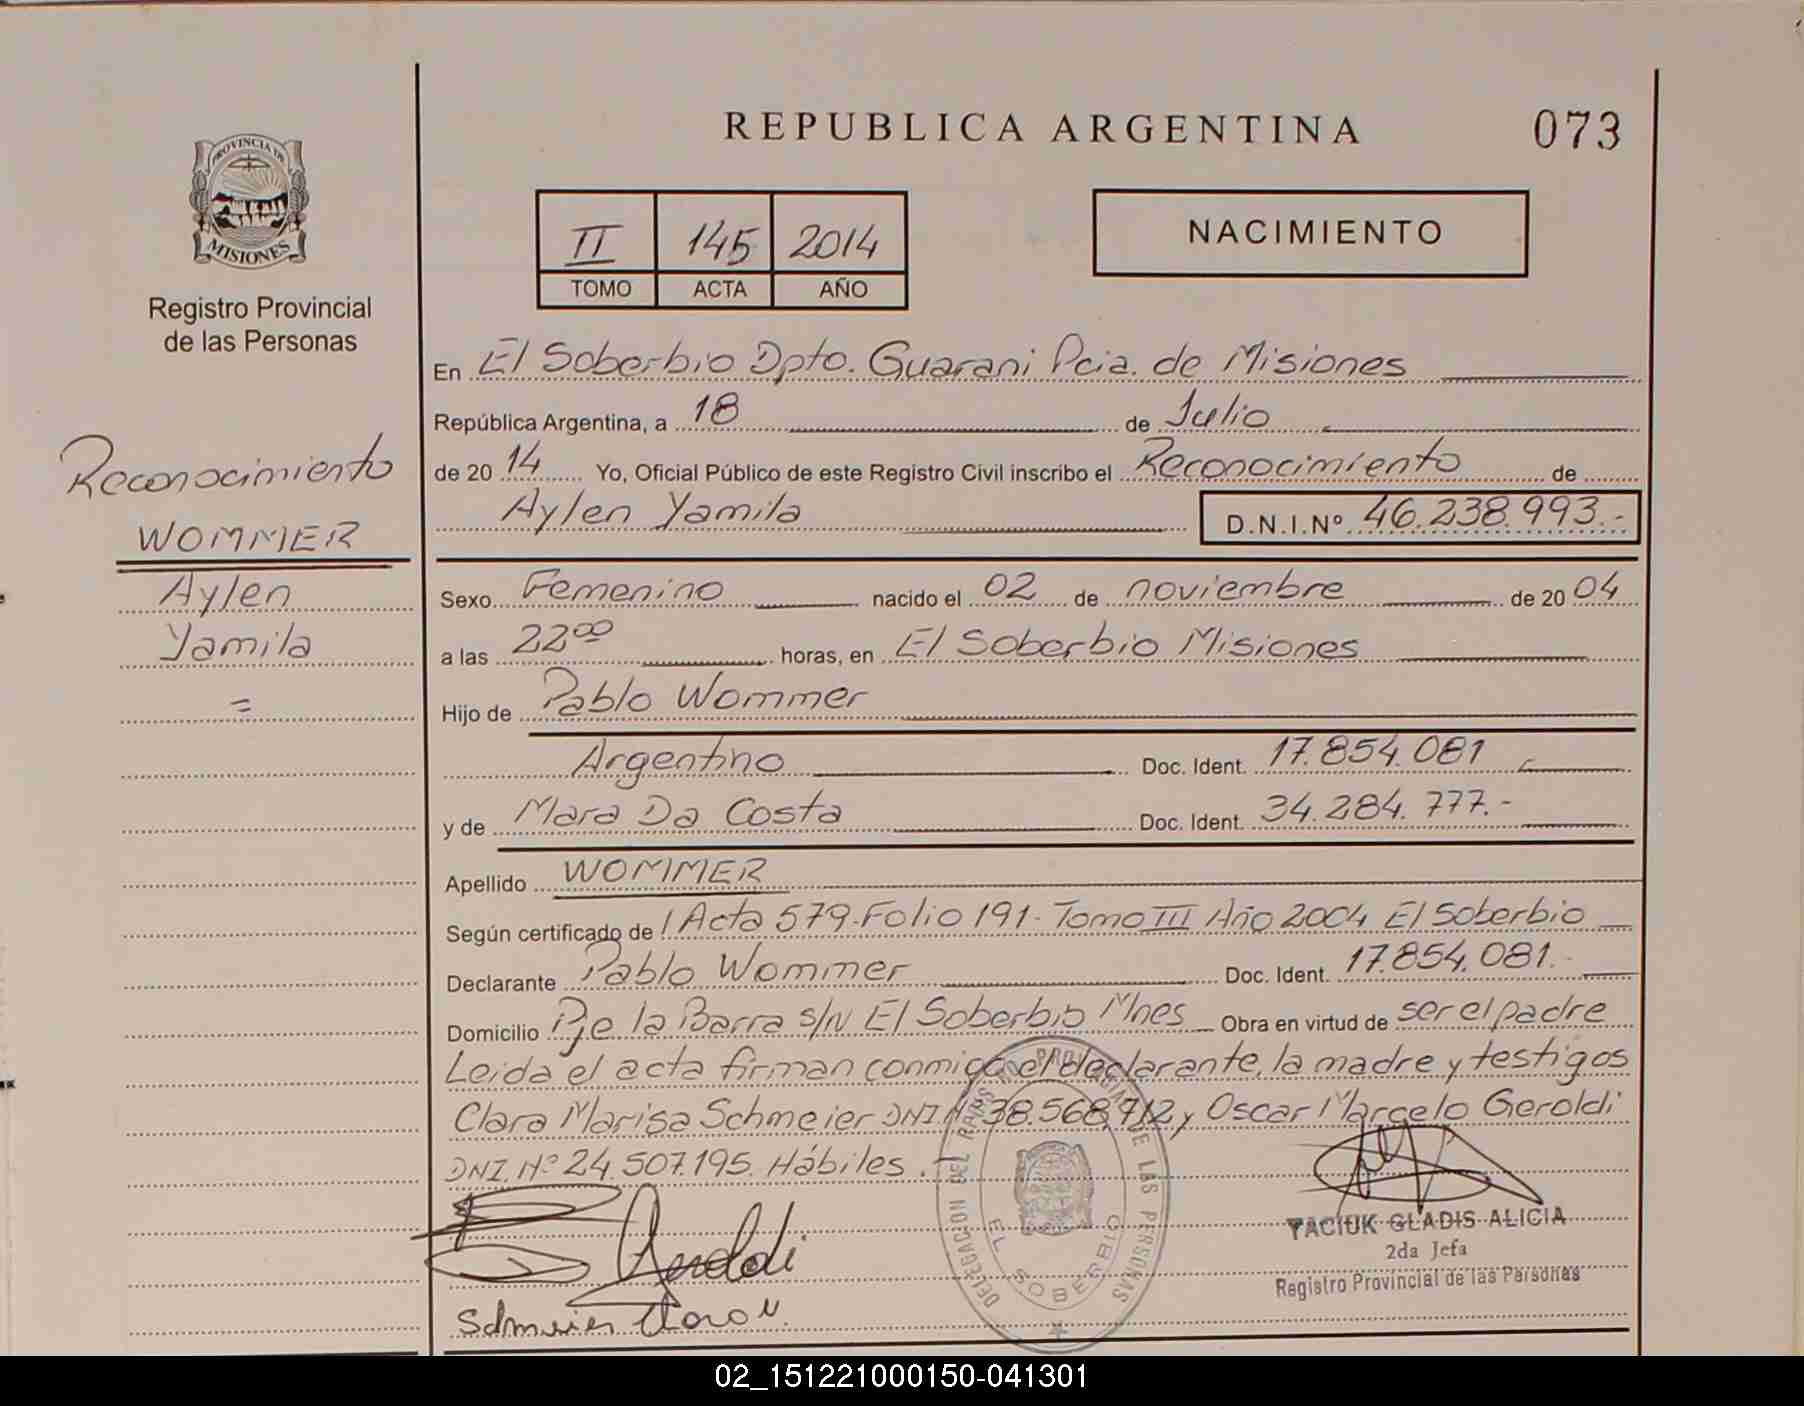 REPUBLICA ARGENTINA
073
PROVINCIA DE
MISIONES
Registro Provincial
de las Personas
II 145 2014
TOMO ACTA AÑO
NACIMIENTO
Reconocimiento
WOMMER
Aylen
Yamila
=
En El Soberbio Dpto. Guarani Pcia. de Misiones
República Argentina, a 18 de Julio
de 20 14 Yo, Oficial Público de este Registro Civil inscribo el Reconocimiento de
Aylen Yamila D.N.I.Nº 46.238.993.-
Sexo Femenino nacido el 02 de noviembre de 20 04
a las 22⁰⁰ horas, en El Soberbio Misiones
Hijo de Pablo Wommer
Argentino Doc. Ident. 17.854.081
y de Mara Da Costa Doc. Ident. 34.284.777.-
Apellido WOMMER
Según certificado de l Acta 579-Folio 191- Tomo III Año 2004 El Soberbio
Declarante Pablo Wommer Doc. Ident. 17.854.081.-
Domicilio Pje la Barra s/N El Soberbio Mnes Obra en virtud de ser el padre
Leida el acta firman conmigo el declarante, la madre y testigos
Clara Marisa Schmeier DNI.Nº 38.568.712 y Oscar Marcelo Geroldi
DNI. Nº 24.507.195. Hábiles.
DELEGACION DEL PROVINCIAL DE LAS PERSONAS
EL SOBERBIO
Geroldi
Schmeier Clara M.
YACIUK GLADIS ALICIA
2da Jefa
Registro Provincial de las Personas
02_151221000150-041301